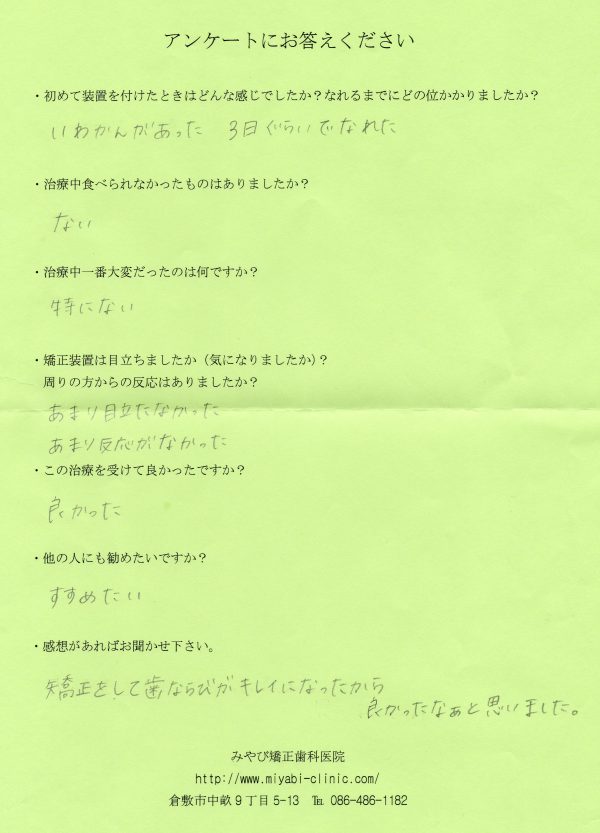 アンケートにお答えください
・初めて装置を付けたときはどんな感じでしたか？なれるまでにどの位かかりましたか？
いわかんがあった　3日ぐらいでなれた
・治療中食べられなかったものはありましたか？
ない
・治療中一番大変だったのは何ですか？
特にない
・矯正装置は目立ちましたか（気になりましたか）？
周りの方からの反応はありましたか？
あまり目立たなかった
あまり反応がなかった
・この治療を受けて良かったですか？
良かった
・他の人にも勧めたいですか？
すすめたい
・感想があればお聞かせ下さい。
矯正をして歯ならびがキレイになったから
良かったなぁと思いました。
みやび矯正歯科医院
http://www.miyabi-clinic.com/
倉敷市中畝９丁目 5-13　℡ 086-486-1182